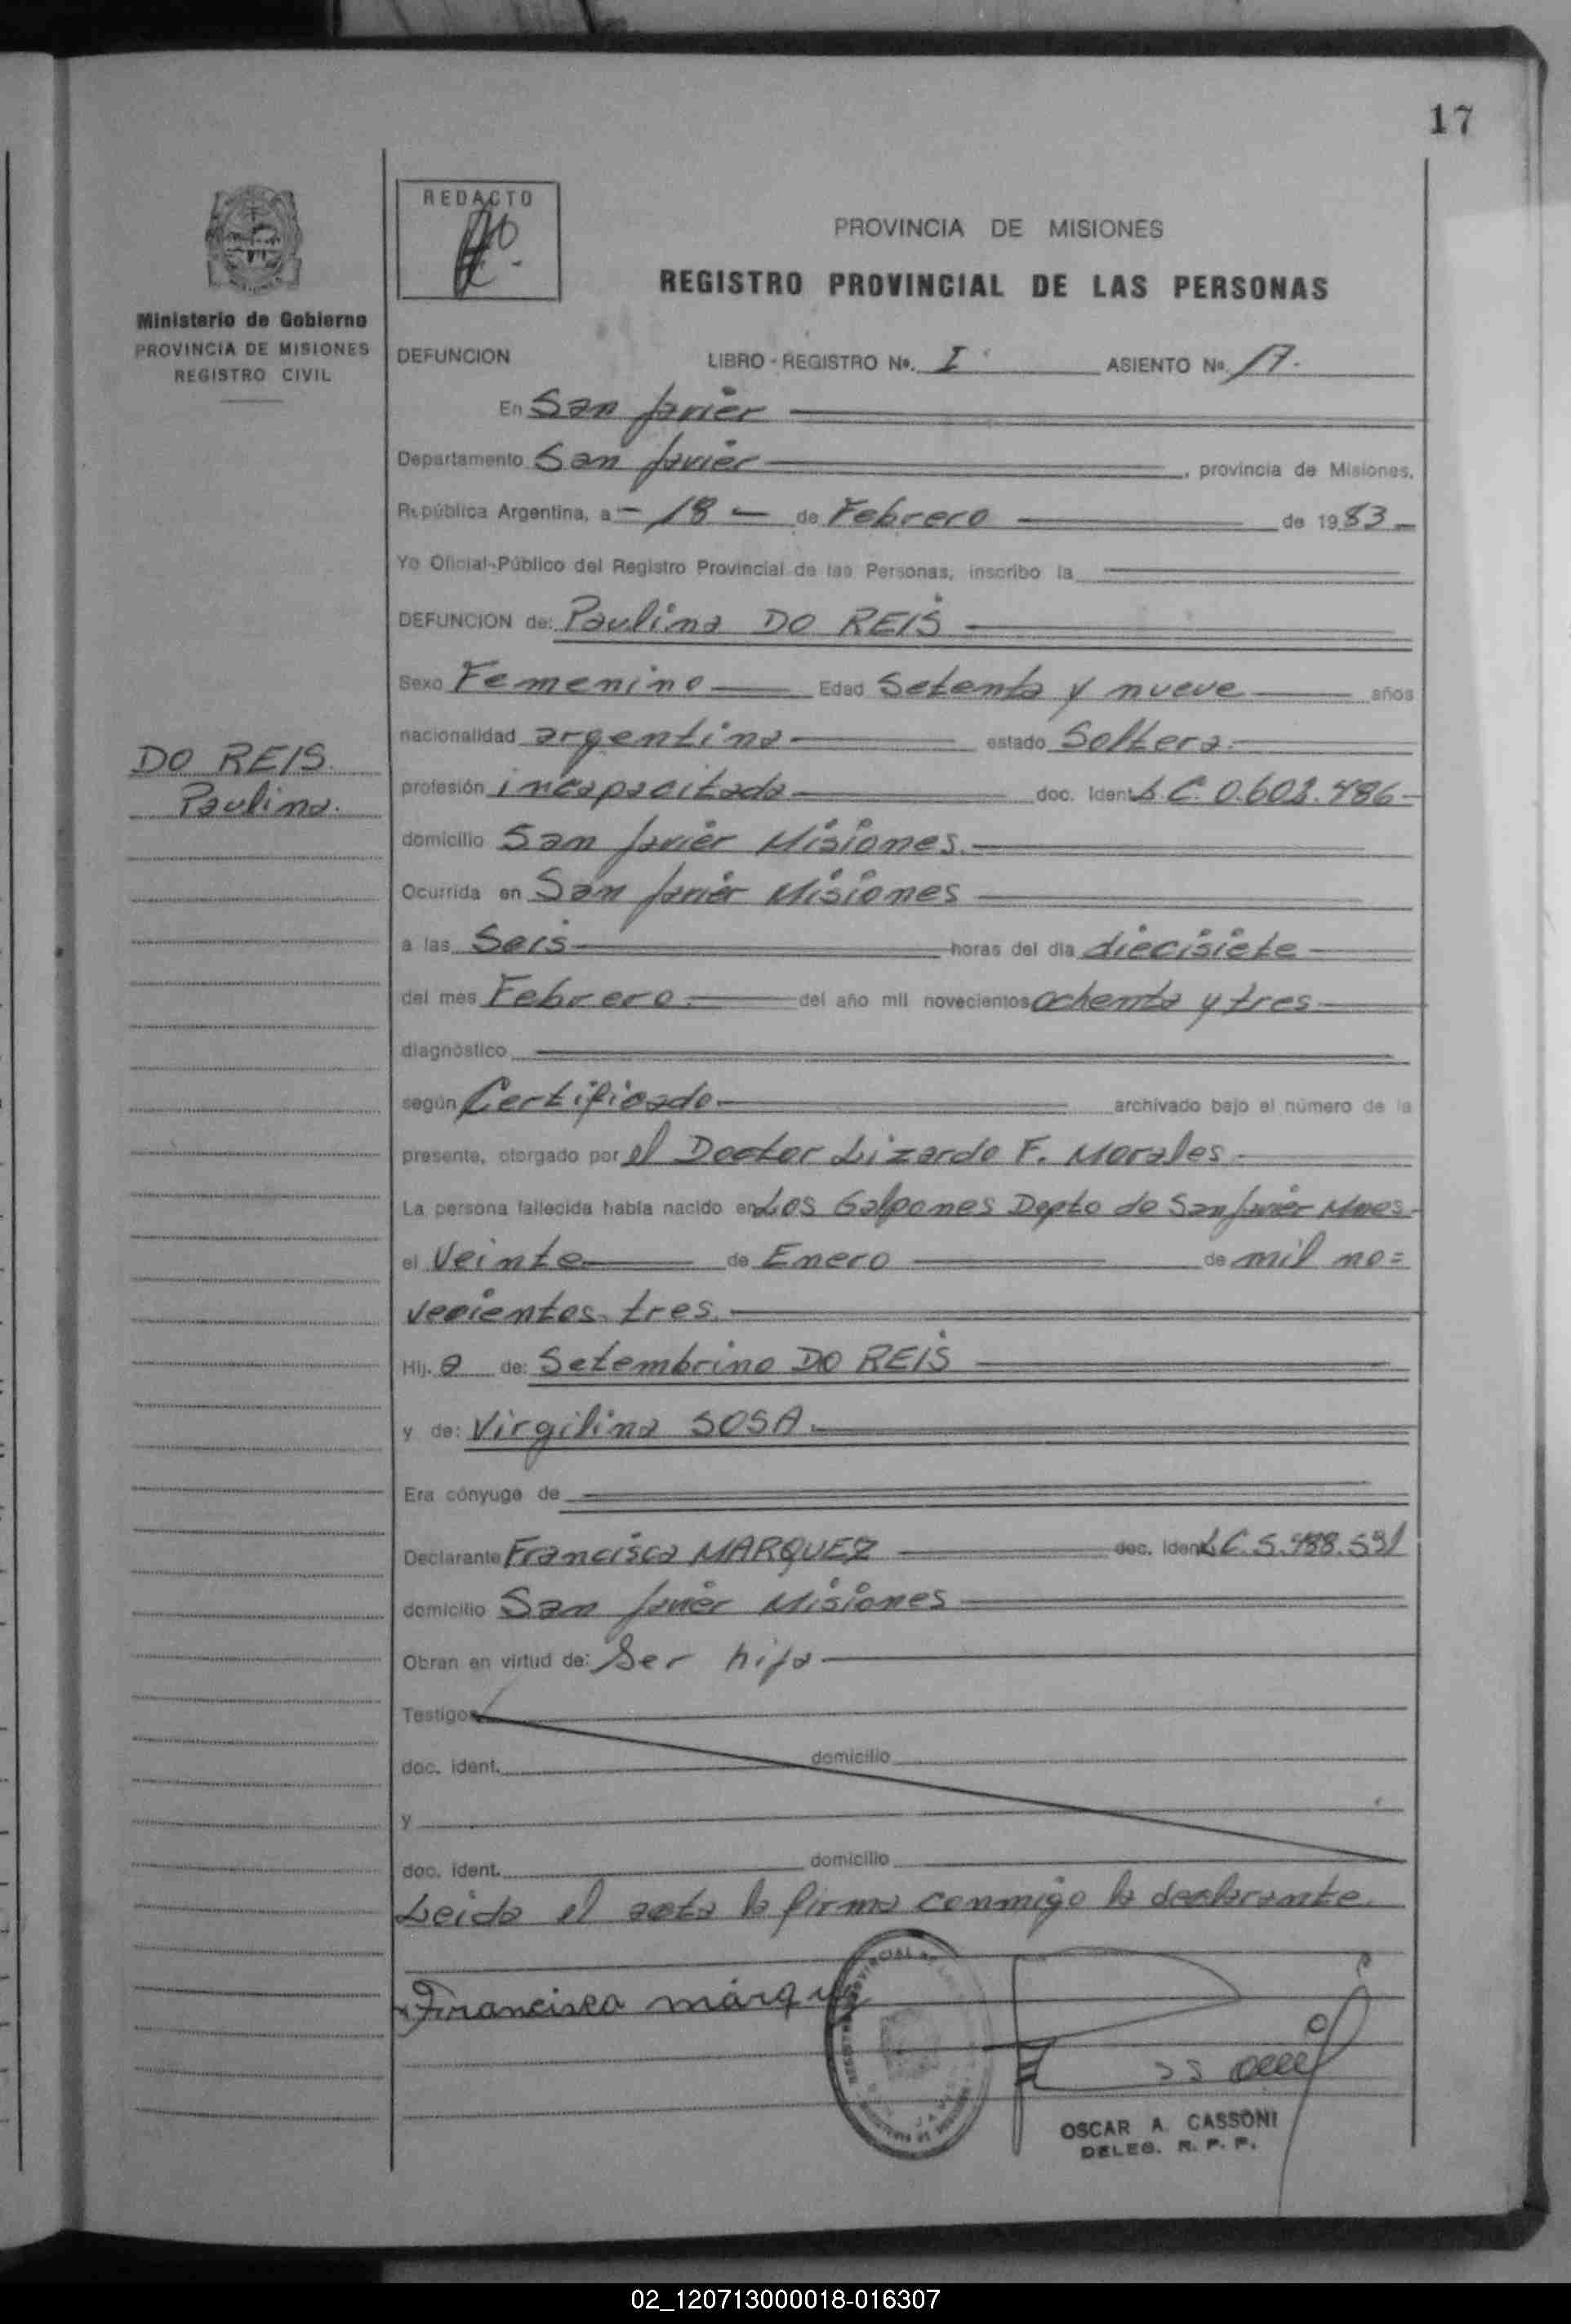 17
REDACTO
PROVINCIA DE MISIONES
REGISTRO PROVINCIAL DE LAS PERSONAS
Ministerio de Gobierno
PROVINCIA DE MISIONES
REGISTRO CIVIL
DEFUNCION LIBRO - REGISTRO Nº. I ASIENTO Nº. 17.
En San Javier
Departamento San Javier , provincia de Misiones,
República Argentina, a - 18 - de Febrero de 1983
Yo Oficial-Público del Registro Provincial de las Personas, inscribo la
DEFUNCION de: Paulina DO REIS
Sexo Femenino Edad Setenta y nueve años
nacionalidad argentina estado Soltera.
DO REIS.
Paulina.
profesión incapacitada doc. Ident. L.C.
domicilio San Javier Misiones.
Ocurrida en San Javier Misiones
a las Seis horas del día diecisiete
del mes Febrero. del año mil novecientos ochenta y tres
diagnóstico
según Certificado archivado bajo el número de la
presente, otorgado por el Doctor Lizardo F. Morales.
La persona fallecida había nacido en Los Galpones Depto de San Javier Mnes
el Veinte de Enero de mil no=
vecientos tres.
Hij. a de: Setembrino DO REIS
y de: Virgilina SOSA.
Era cónyuge de
Declarante Francisca MARQUEZ doc. Ident. L.C. 5.488.591
domicilio San Javier Misiones
Obran en virtud de: Ser hija
Testigos
doc. ident. domicilio
y
doc. ident. domicilio
Leida el acta la firma conmigo la declarante.
Francisca márquez
OSCAR A. CASSONI
DELEG. R. P. P.
02_120713000018-016307